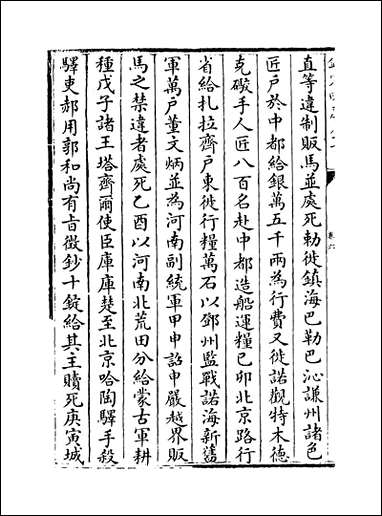 直等違制販馬並處死勅徙鎮海巴勒巴沁謙州諸色
匠戸於中都給銀萬五千兩為行費又徙諾觀特木德
克礮手人匠八百名赴中都造船運糧己卯北京路行
省給札拉齊戸東徙行糧萬石以鄧州監戰諾海新舊
軍萬戸董文炳並為河南副統軍甲申詔申嚴越界販
馬之禁違者處死乙酉以河南北荒田分給蒙古軍耕
種戊子諸王塔齊爾使臣庫庫楚至北京哈陶驛手殺
驛吏郝用郭和尚有㫖徴鈔十錠給其主贖死庚寅城